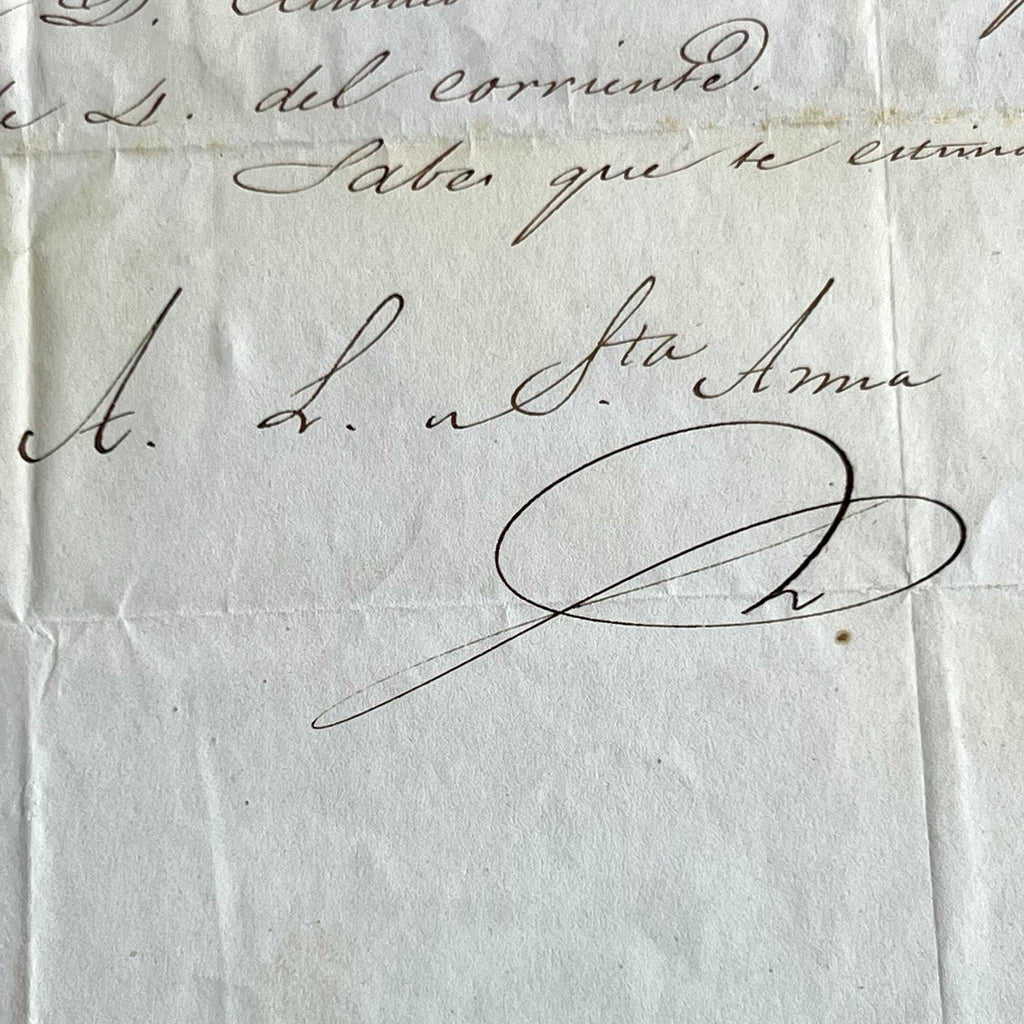 D.
de L. del corriente.
Sabes que te estima
A. L. de Sta. Anna